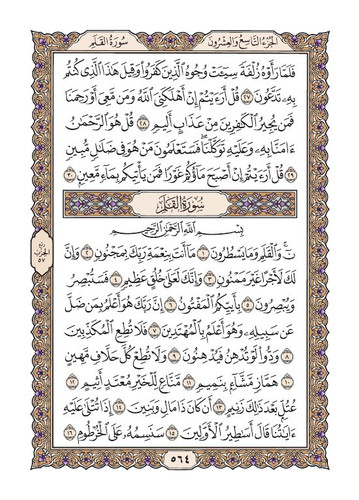 الجزء التاسع والعشرون
سورة القلم
فَلَمَّا رَأَوْهُ زُلْفَةً سِيٓـَٔتْ وُجُوهُ ٱلَّذِينَ كَفَرُوا۟ وَقِيلَ هَـٰذَا ٱلَّذِى كُنتُم
بِهِۦ تَدَّعُونَ ٢٧ قُلْ أَرَءَيْتُمْ إِنْ أَهْلَكَنِىَ ٱللَّهُ وَمَن مَّعِىَ أَوْ رَحِمَنَا
فَمَن يُجِيرُ ٱلْكَـٰفِرِينَ مِنْ عَذَابٍ أَلِيمٍ ٢٨ قُلْ هُوَ ٱلرَّحْمَـٰنُ
ءَامَنَّا بِهِۦ وَعَلَيْهِ تَوَكَّلْنَا ۖ فَسَتَعْلَمُونَ مَنْ هُوَ فِى ضَلَـٰلٍ مُّبِينٍ
٢٩ قُلْ أَرَءَيْتُمْ إِنْ أَصْبَحَ مَآؤُكُمْ غَوْرًا فَمَن يَأْتِيكُم بِمَآءٍ مَّعِينٍۭ ٣٠
سورة القلم
بِسْمِ ٱللَّهِ ٱلرَّحْمَـٰنِ ٱلرَّحِيمِ
نٓ ۚ وَٱلْقَلَمِ وَمَا يَسْطُرُونَ ١ مَآ أَنتَ بِنِعْمَةِ رَبِّكَ بِمَجْنُونٍ ٢ وَإِنَّ
لَكَ لَأَجْرًا غَيْرَ مَمْنُونٍ ٣ وَإِنَّكَ لَعَلَىٰ خُلُقٍ عَظِيمٍ ٤ فَسَتُبْصِرُ
وَيُبْصِرُونَ ٥ بِأَييِّكُمُ ٱلْمَفْتُونُ ٦ إِنَّ رَبَّكَ هُوَ أَعْلَمُ بِمَن ضَلَّ
عَن سَبِيلِهِۦ وَهُوَ أَعْلَمُ بِٱلْمُهْتَدِينَ ٧ فَلَا تُطِعِ ٱلْمُكَذِّبِينَ
٨ وَدُّوا۟ لَوْ تُدْهِنُ فَيُدْهِنُونَ ٩ وَلَا تُطِعْ كُلَّ حَلَّافٍ مَّهِينٍ
١٠ هَمَّازٍ مَّشَّآءٍۭ بِنَمِيمٍ ١١ مَّنَّاعٍ لِّلْخَيْرِ مُعْتَدٍ أَثِيمٍ ١٢
عُتُلٍّۭ بَعْدَ ذَٰلِكَ زَنِيمٍ ١٣ أَن كَانَ ذَا مَالٍ وَبَنِينَ ١٤ إِذَا تُتْلَىٰ عَلَيْهِ
ءَايَـٰتُنَا قَالَ أَسَـٰطِيرُ ٱلْأَوَّلِينَ ١٥ سَنَسِمُهُۥ عَلَى ٱلْخُرْطُومِ ١٦
٥٦٤